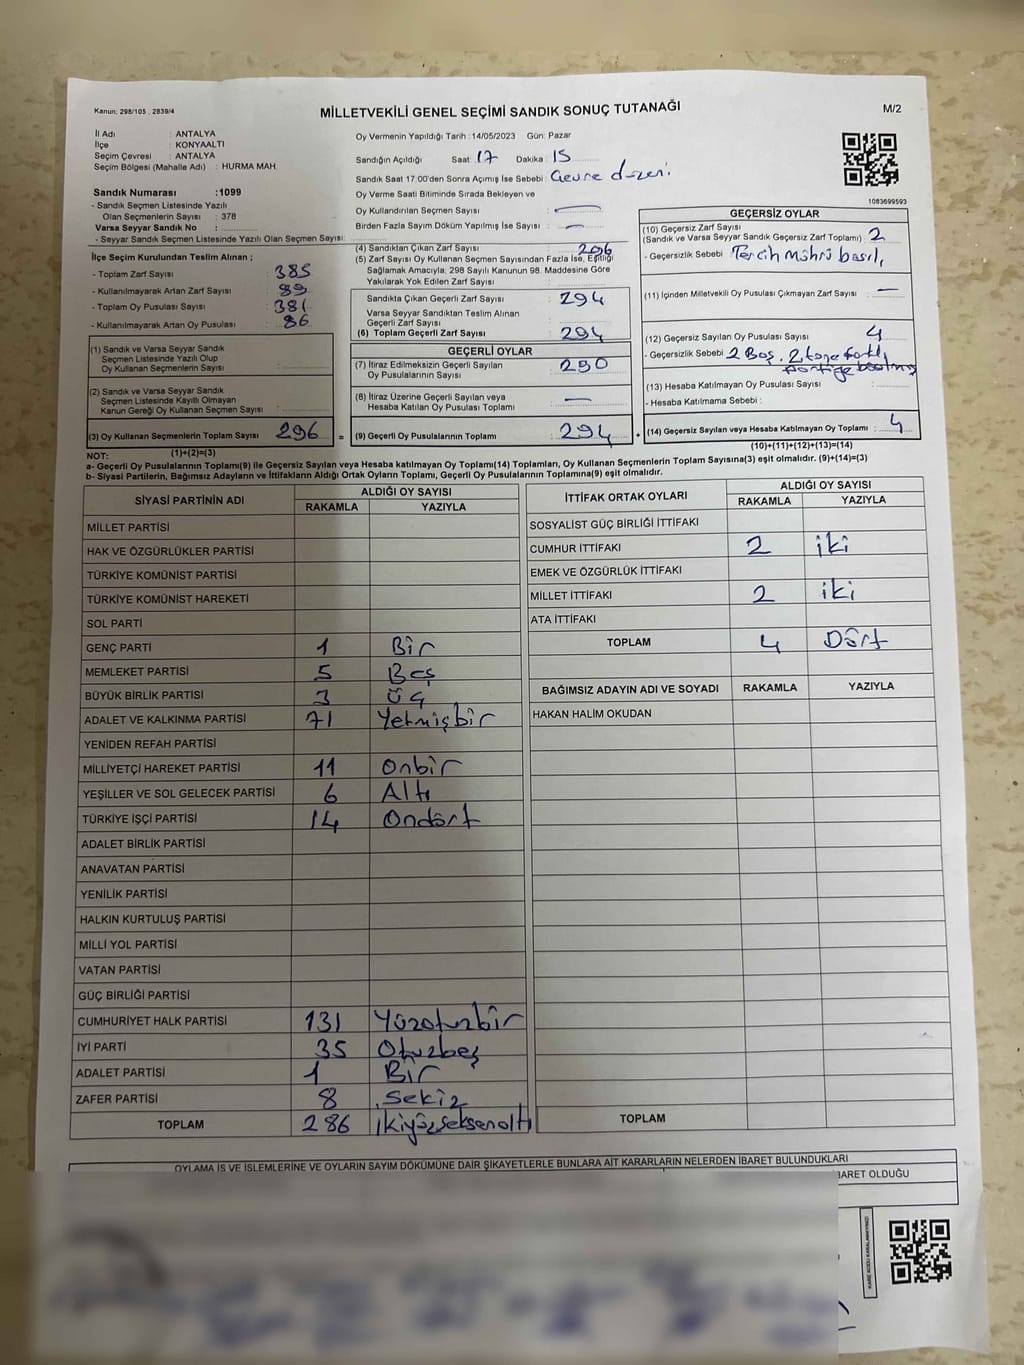 Kanun: 298/105 , 2839/4
MİLLETVEKİLİ GENEL SEÇİMİ SANDIK SONUÇ TUTANAĞI
M/2
İl Adı : ANTALYA
İlçe : KONYAALTI
Seçim Çevresi : ANTALYA
Seçim Bölgesi (Mahalle Adı) : HURMA MAH.
Sandık Numarası :1099
- Sandık Seçmen Listesinde Yazılı
Olan Seçmenlerin Sayısı : 378
Varsa Seyyar Sandık No :
- Seyyar Sandık Seçmen Listesinde Yazılı Olan Seçmen Sayısı:
İlçe Seçim Kurulundan Teslim Alınan ;
- Toplam Zarf Sayısı : 385
- Kullanılmayarak Artan Zarf Sayısı : 89
- Toplam Oy Pusulası Sayısı : 381
- Kullanılmayarak Artan Oy Pusulası : 86
(1) Sandık ve Varsa Seyyar Sandık
Seçmen Listesinde Yazılı Olup
Oy Kullanan Seçmenlerin Sayısı :
(2) Sandık ve Varsa Seyyar Sandık
Seçmen Listesinde Kayıtlı Olmayan
Kanun Gereği Oy Kullanan Seçmen Sayısı :
(3) Oy Kullanan Seçmenlerin Toplam Sayısı : 296 =
(1)+(2)=(3)
Oy Vermenin Yapıldığı Tarih : 14/05/2023 Gün: Pazar
Sandığın Açıldığı Saat: 17 Dakika : 15
Sandık Saat 17:00'den Sonra Açımış İse Sebebi : Çevre düzeni
Oy Verme Saati Bitiminde Sırada Bekleyen ve
Oy Kullandırılan Seçmen Sayısı : —
Birden Fazla Sayım Döküm Yapılmış İse Sayısı : —
(4) Sandıktan Çıkan Zarf Sayısı : 296
(5) Zarf Sayısı Oy Kullanan Seçmen Sayısından Fazla İse, Eşitliği
Sağlamak Amacıyla, 298 Sayılı Kanunun 98. Maddesine Göre
Yakılarak Yok Edilen Zarf Sayısı :
Sandıkta Çıkan Geçerli Zarf Sayısı : 294
Varsa Seyyar Sandıktan Teslim Alınan
Geçerli Zarf Sayısı :
(6) Toplam Geçerli Zarf Sayısı : 294
GEÇERLİ OYLAR
(7) İtiraz Edilmeksizin Geçerli Sayılan
Oy Pusulalarının Sayısı : 290
(8) İtiraz Üzerine Geçerli Sayılan veya
Hesaba Katılan Oy Pusulası Toplamı : —
(9) Geçerli Oy Pusulalarının Toplamı : 294 +
1083699593
GEÇERSİZ OYLAR
(10) Geçersiz Zarf Sayısı
(Sandık ve Varsa Seyyar Sandık Geçersiz Zarf Toplamı) : 2
- Geçersizlik Sebebi : Tercih mührü basılı
(11) İçinden Milletvekili Oy Pusulası Çıkmayan Zarf Sayısı : —
(12) Geçersiz Sayılan Oy Pusulası Sayısı : 4
- Geçersizlik Sebebi : 2 Boş, 2 tane farklı
partiye basılmış
(13) Hesaba Katılmayan Oy Pusulası Sayısı :
- Hesaba Katılmama Sebebi :
(14) Geçersiz Sayılan veya Hesaba Katılmayan Oy Toplamı : 4
(10)+(11)+(12)+(13)=(14)
NOT:
a- Geçerli Oy Pusulalarının Toplamı(9) ile Geçersiz Sayılan veya Hesaba katılmayan Oy Toplamı(14) Toplamları, Oy Kullanan Seçmenlerin Toplam Sayısına(3) eşit olmalıdır. (9)+(14)=(3)
b- Siyasi Partilerin, Bağımsız Adayların ve İttifakların Aldığı Ortak Oyların Toplamı, Geçerli Oy Pusulalarının Toplamına(9) eşit olmalıdır.
SİYASİ PARTİNİN ADI ALDIĞI OY SAYISI
RAKAMLA YAZIYLA
MİLLET PARTİSİ
HAK VE ÖZGÜRLÜKLER PARTİSİ
TÜRKİYE KOMÜNİST PARTİSİ
TÜRKİYE KOMÜNİST HAREKETİ
SOL PARTİ
GENÇ PARTİ 1 Bir
MEMLEKET PARTİSİ 5 Beş
BÜYÜK BİRLİK PARTİSİ 3 Üç
ADALET VE KALKINMA PARTİSİ 71 Yetmişbir
YENİDEN REFAH PARTİSİ
MİLLİYETÇİ HAREKET PARTİSİ 11 Onbir
YEŞİLLER VE SOL GELECEK PARTİSİ 6 Altı
TÜRKİYE İŞÇİ PARTİSİ 14 Ondört
ADALET BİRLİK PARTİSİ
ANAVATAN PARTİSİ
YENİLİK PARTİSİ
HALKIN KURTULUŞ PARTİSİ
MİLLİ YOL PARTİSİ
VATAN PARTİSİ
GÜÇ BİRLİĞİ PARTİSİ
CUMHURİYET HALK PARTİSİ 131 Yüzotuzbir
İYİ PARTİ 35 Otuzbeş
ADALET PARTİSİ 1 Bir
ZAFER PARTİSİ 8 Sekiz
TOPLAM 286 ikiyüzseksenaltı
İTTİFAK ORTAK OYLARI ALDIĞI OY SAYISI
RAKAMLA YAZIYLA
SOSYALİST GÜÇ BİRLİĞİ İTTİFAKI
CUMHUR İTTİFAKI 2 iki
EMEK VE ÖZGÜRLÜK İTTİFAKI
MİLLET İTTİFAKI 2 iki
ATA İTTİFAKI
TOPLAM 4 Dört
BAĞIMSIZ ADAYIN ADI VE SOYADI RAKAMLA YAZIYLA
HAKAN HALİM OKUDAN
TOPLAM
OYLAMA İŞ VE İŞLEMLERİNE VE OYLARIN SAYIM DÖKÜMÜNE DAİR ŞİKAYETLERLE BUNLARA AİT KARARLARIN NELERDEN İBARET BULUNDUKLARI
İBARET OLDUĞU
KARE KODU KARALAMAYINIZ!